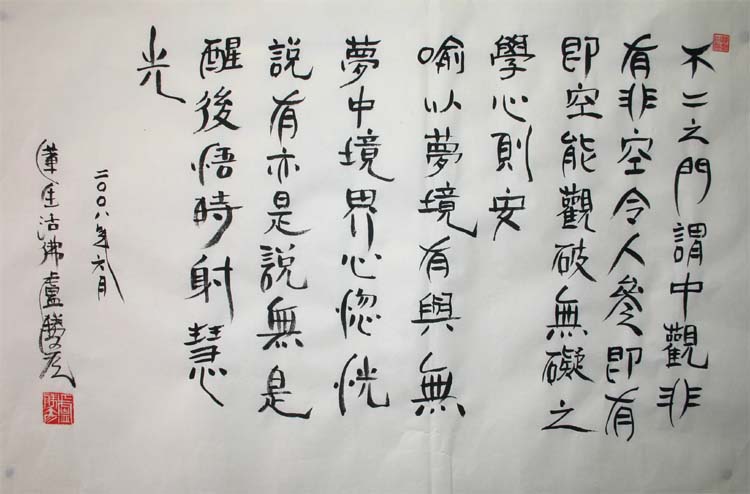 不二之門謂中觀非
有非空令人參即有
即空能觀破無礙之
學心則安
喻以夢境有與無
夢中境界心惚恍
說有亦是說無是
醒後悟時射慧
光
二〇〇八年六月
蓮生活佛盧勝彥